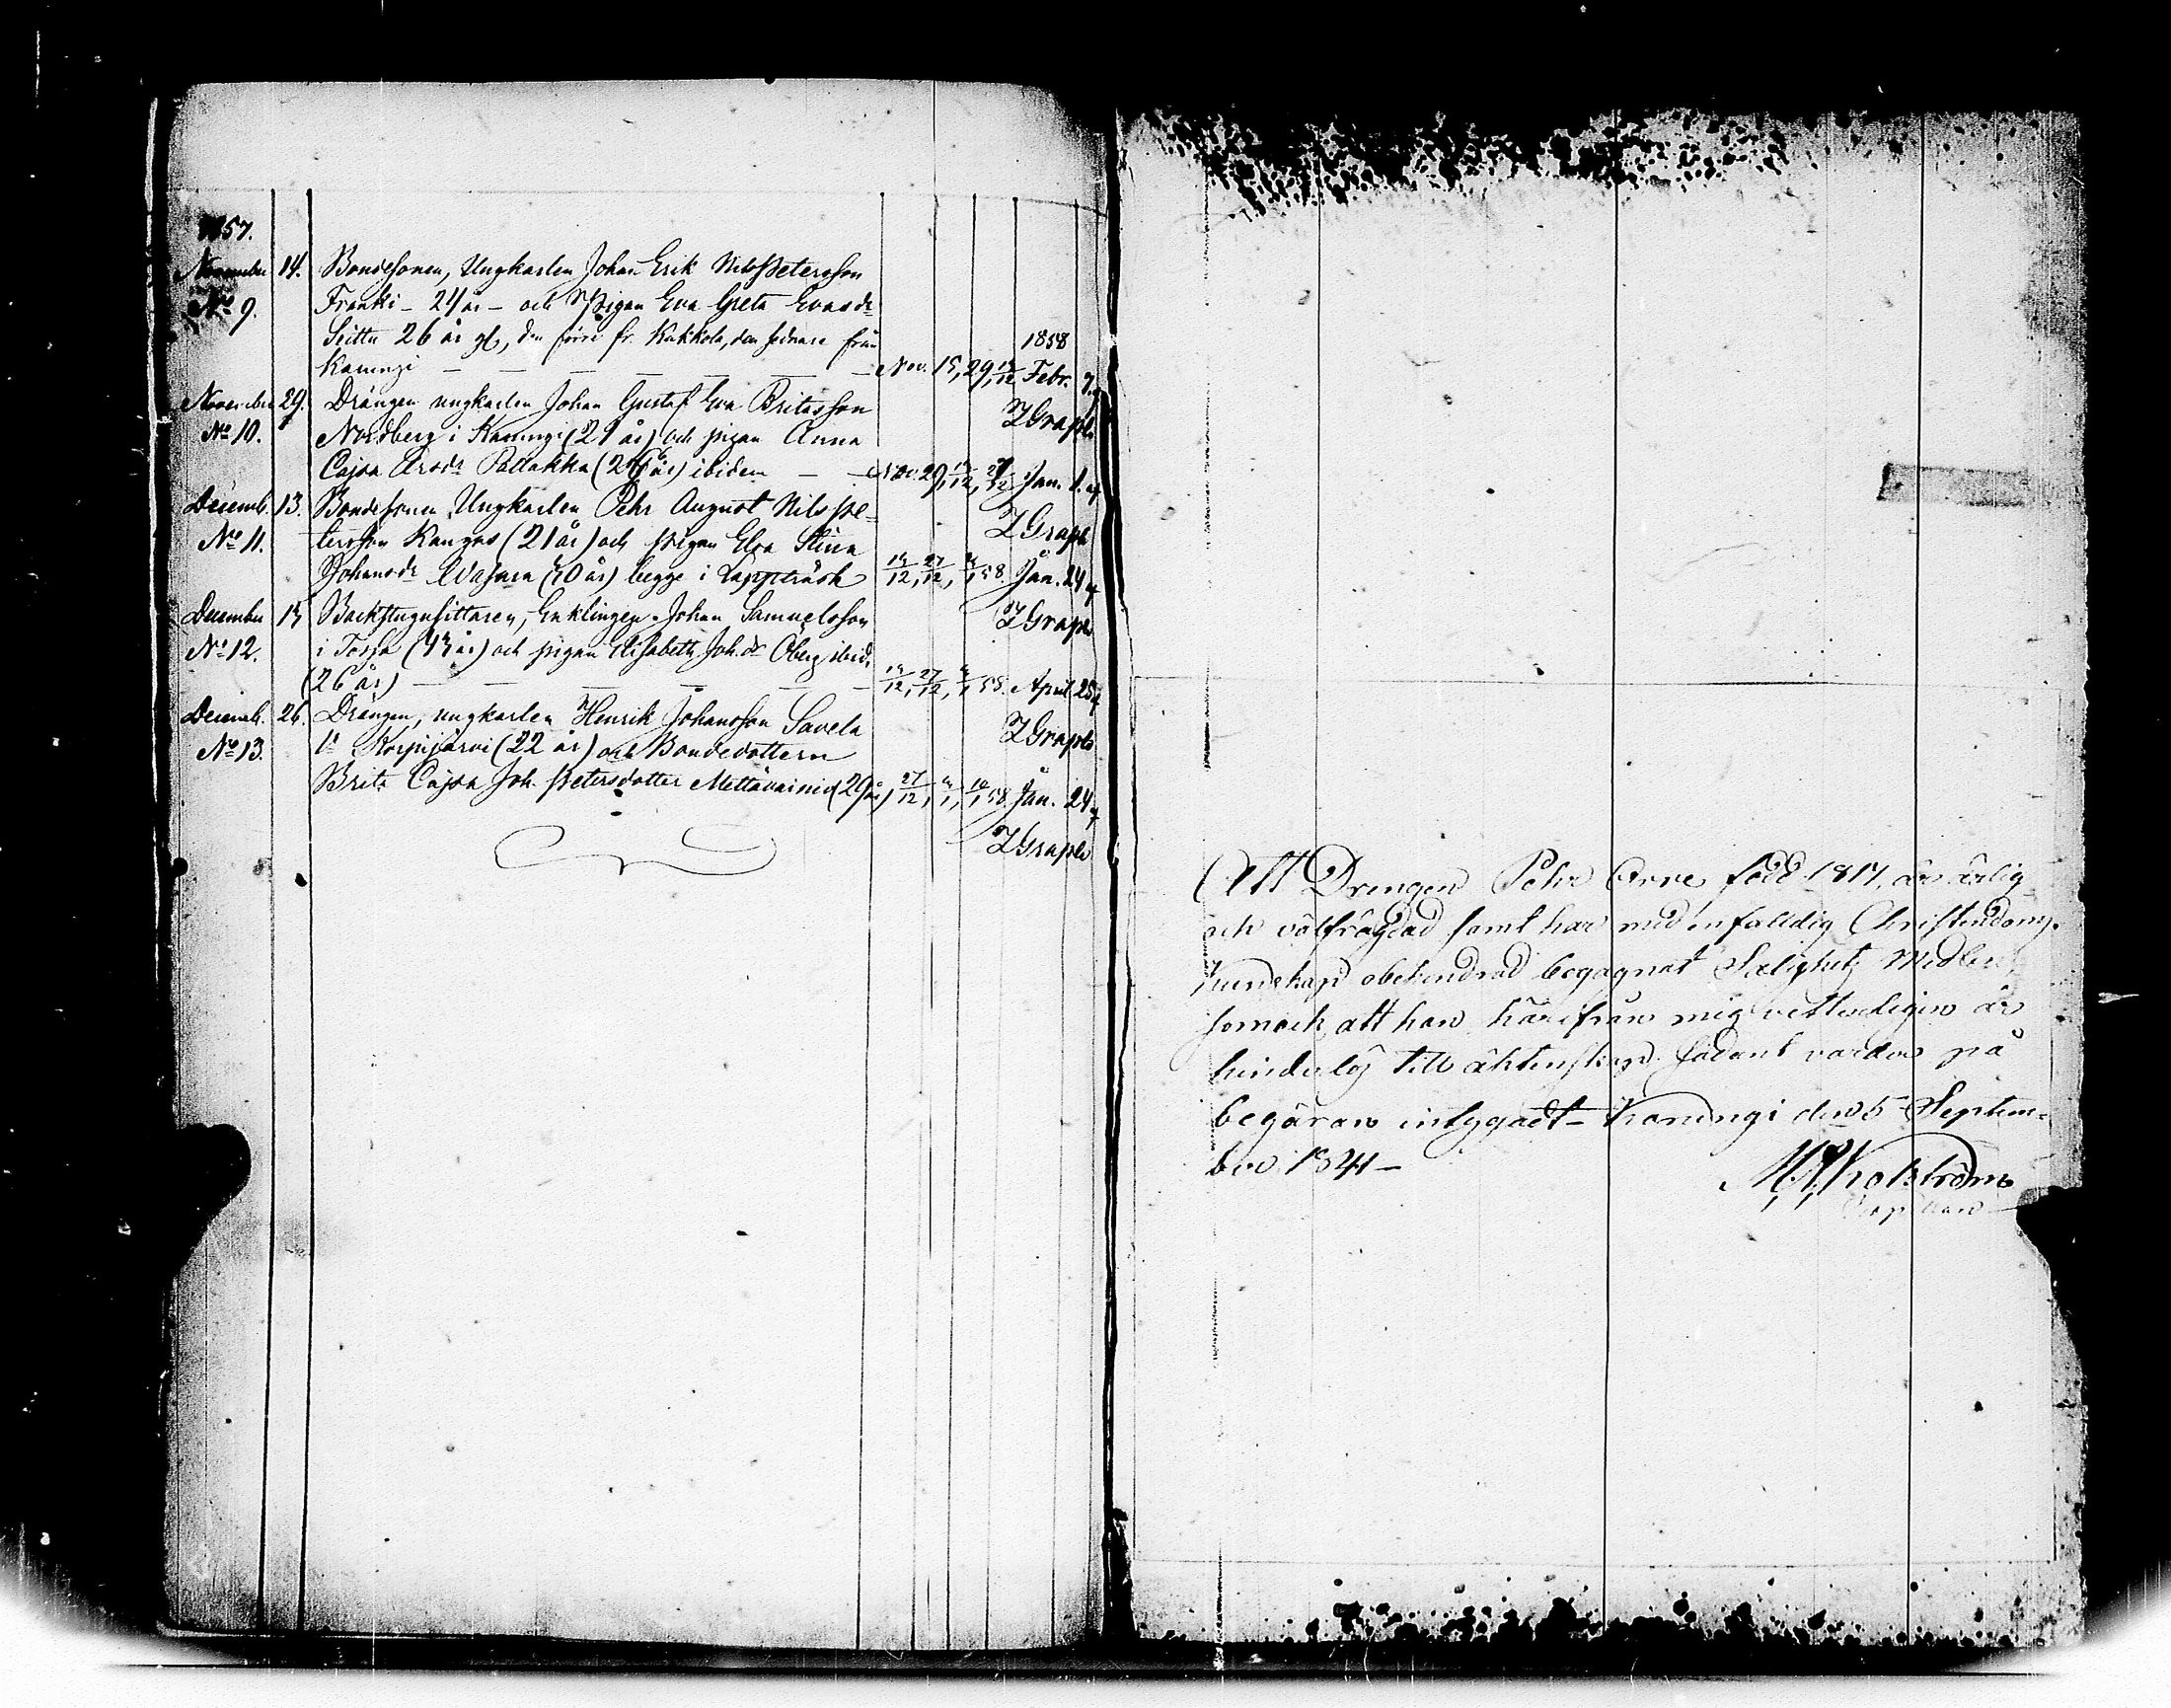 1857.
November 14. Bondesonen, Ungkarlen Johan Erik Nils Petersson
No 9. Franki - 24 år - och Pigan Eva Greta Evasdr
Seittu 26 år gl, den förre fr. Kukkola, den sednare från 1858
Karungi — — — — — — Nov. 15, 29, 13/12 Febr. 7.
November 29. Drängen ungkarlen Johan Gustaf Eva Britasson
ZGrape
No 10. Nordberg i Karungi (21 år) och pigan Anna
Cajsa Arvdr Pallakka (26 år) ibidem — — Nov. 29, 13/12, 27/12 Jan. 1.
Decemb. 13. Bondesonen Ungkarlen Pehr August Nils Pe-
ZGrape
No 11. tersson Kangas (21 år) och pigan Elsa Stina
Johansdr Wasara (20 år) begge i Lappträsk 13/12, 27/12, 58. Jan. 24
December 13 Backstugusittaren, Enklingen Johan Samuelsson
ZGrape
No 12. i (43 år) och pigan Elisabeth Joh.dr Öberg ibid.
(26 år) — — — — — — 13/12, 27/12, 58. April 25
Decemb. 26. Drängen, ungkarlen Henrik Johansson Savela
ZGrape
No 13. Korpijärvi (22 år) och Bondedottern
Brita Cajsa Joh. Petersdotter Mettävainio (29 år) 27/12, 10/1 58. Jan. 24
ZGrape
Att Drengen Pehr Arve född 1817, är ärlig
och välfrägdad samt har med enfalldig Christendoms
kundskap obehindrad begagnat Salighets Medlen,
som ock att han härifrån mig vetterligen är
hinderlös till äktenskap, sådant varder på
begäran intygadt - Karungi den 5 Septem-
ber 1841 -